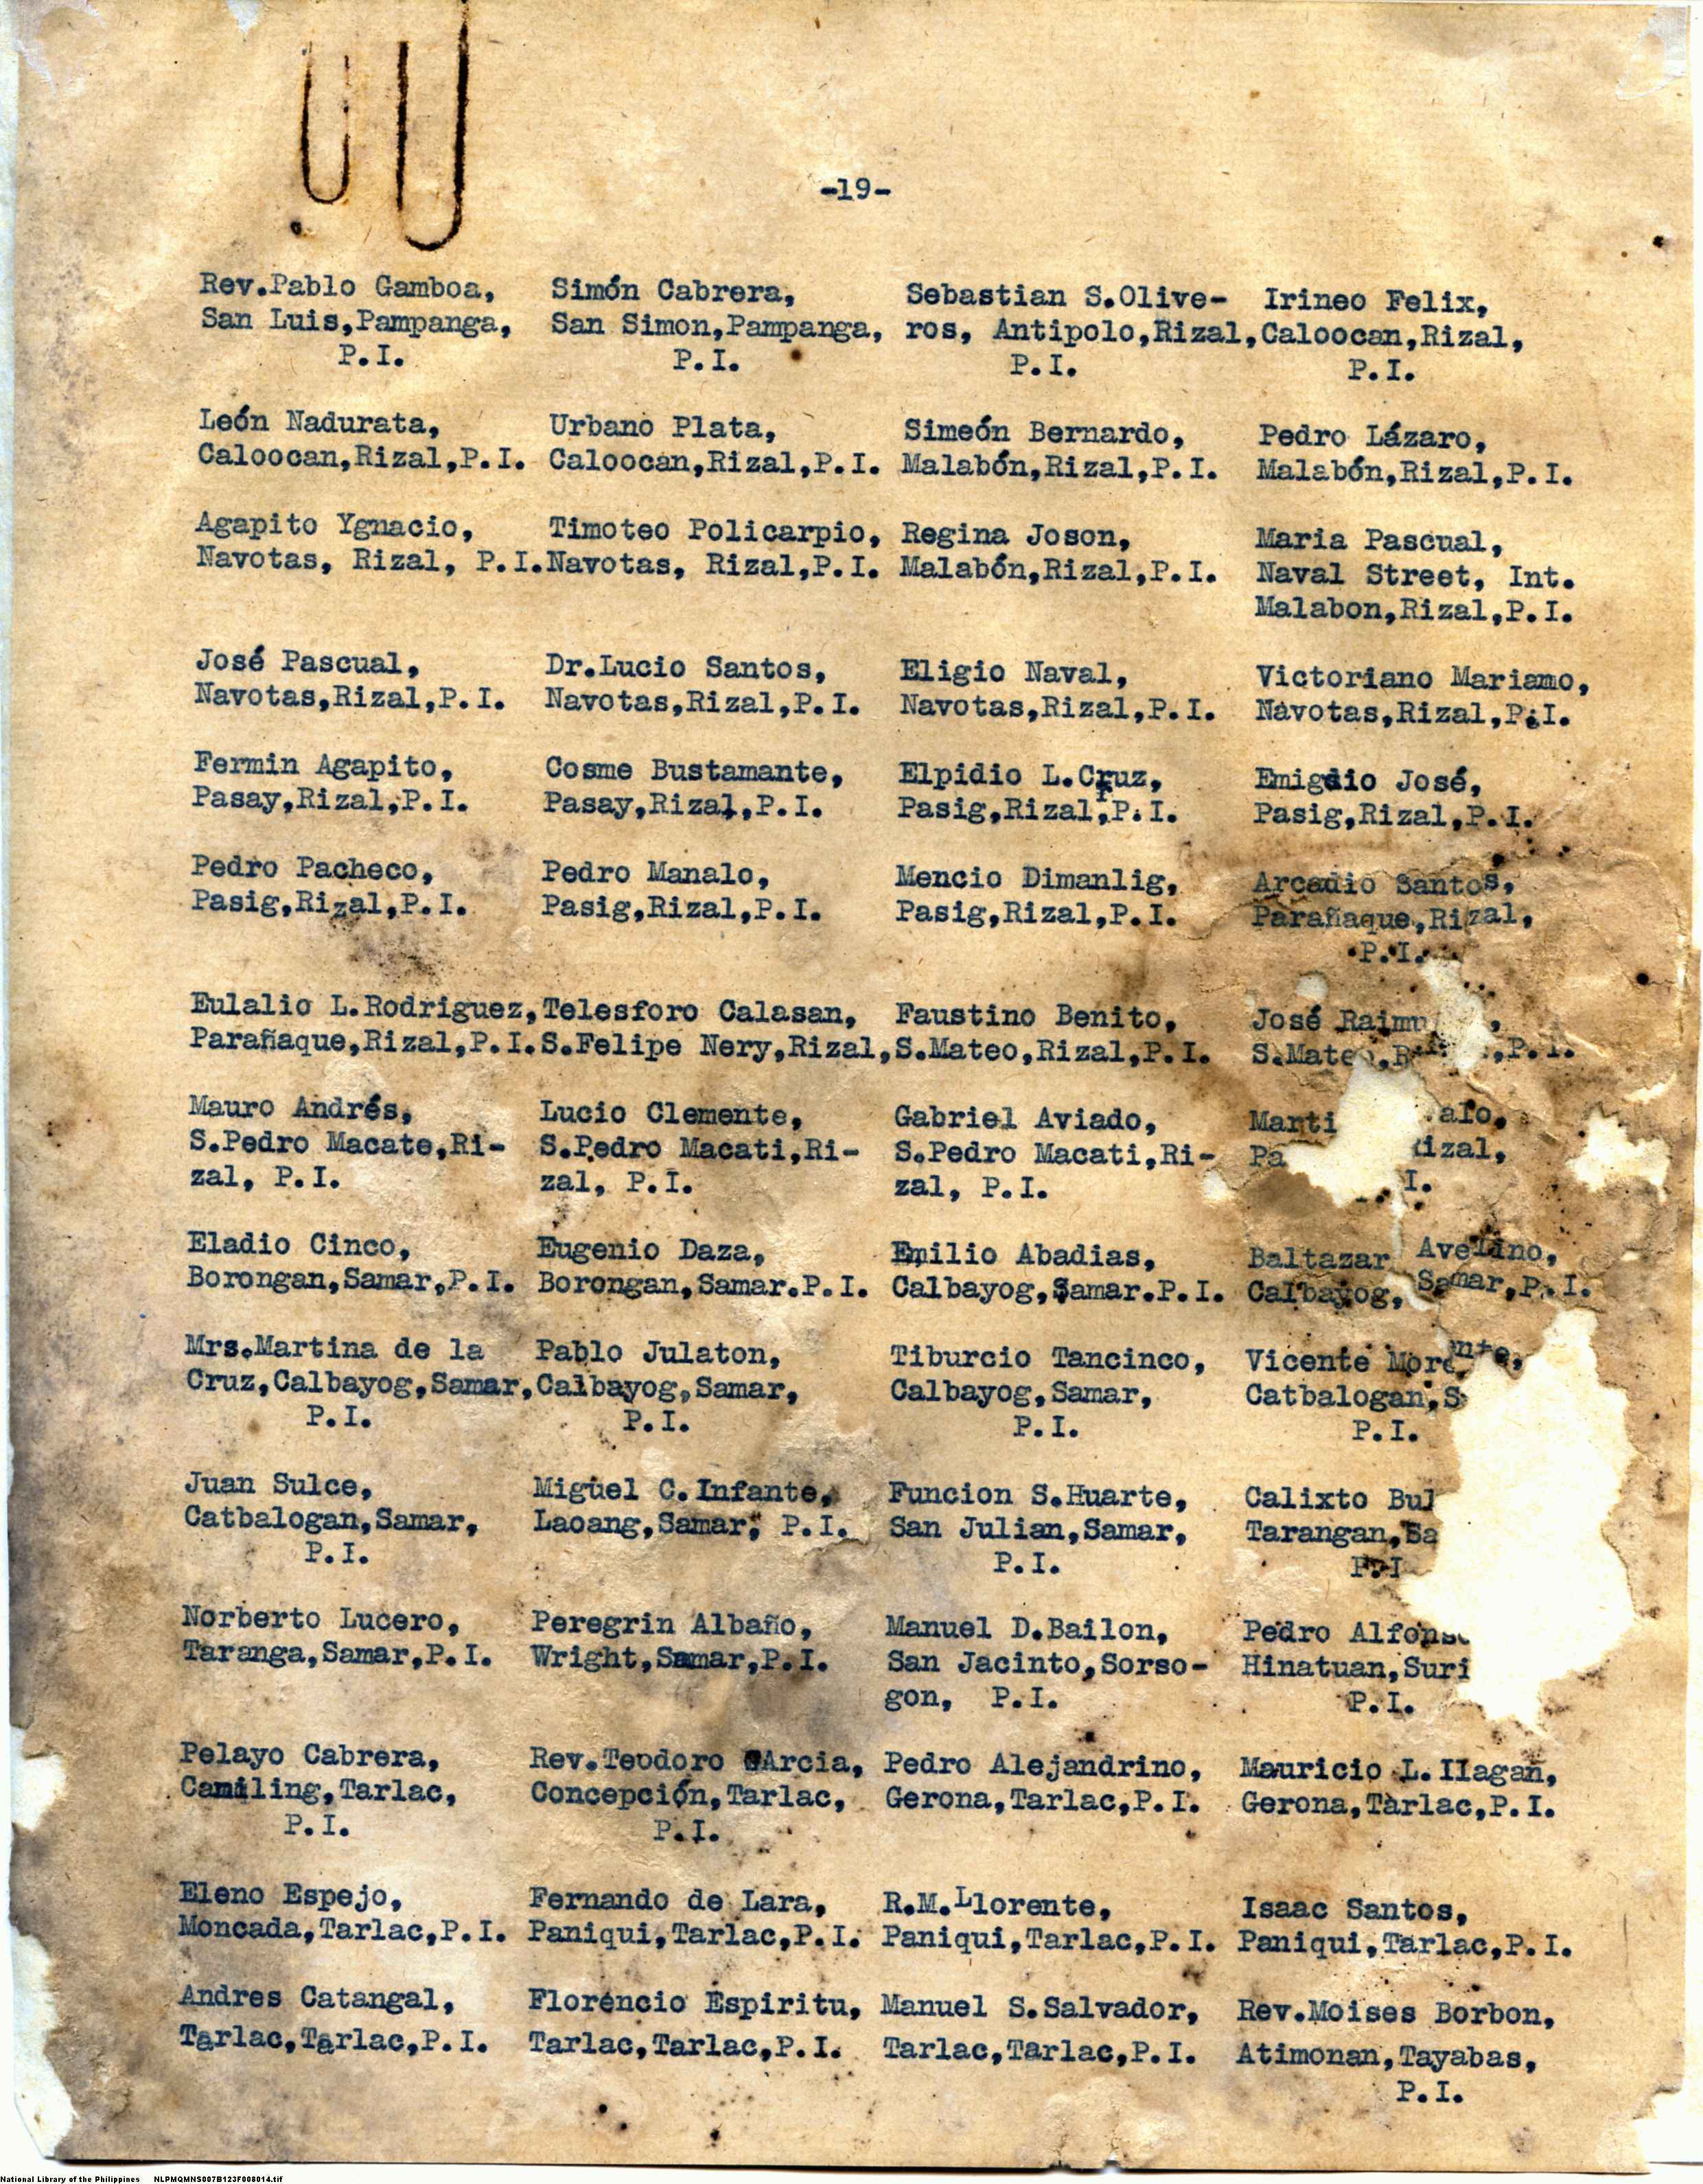 -19-
Rev.Pablo Gamboa,
San Luis,Pampanga,
P.I.
Simón Cabrera,
San Simon,Pampanga,
P.I.
Sebastian S.Olive-
ros, Antipolo,Rizal,
P.I.
Irineo Felix,
Caloocan,Rizal,
P.I.
León Nadurata,
Caloocan,Rizal,P.I.
Urbano Plata,
Caloocan,Rizal,P.I.
Simeón Bernardo,
Malabón,Rizal,P.I.
Pedro Lázaro,
Malabón,Rizal,P.I.
Agapito Ygnacio,
Navotas, Rizal, P.I.
Timoteo Policarpio,
Navotas, Rizal,P.I.
Regina Joson,
Malabón,Rizal,P.I.
Maria Pascual,
Naval Street, Int.
Malabon,Rizal,P.I.
José Pascual,
Navotas,Rizal,P.I.
Dr.Lucio Santos,
Navotas,Rizal,P.I.
Eligio Naval,
Navotas,Rizal,P.I.
Victoriano Mariamo,
Navotas,Rizal,P.I.
Fermin Agapito,
Pasay,Rizal,P.I.
Cosme Bustamante,
Pasay,Rizal,P.I.
Elpidio L.Cruz,
Pasig,Rizal,P.I.
Emigdio José,
Pasig,Rizal,P.I.
Pedro Pacheco,
Pasig,Rizal,P.I.
Pedro Manalo,
Pasig,Rizal,P.I.
Mencio Dimanlig,
Pasig,Rizal,P.I.
Arcadio Santos,
Parañaque,Rizal,
P.I.
Eulalio L.Rodriguez,
Parañaque,Rizal,P.I.
Telesforo Calasan,
S.Felipe Nery,Rizal,
Faustino Benito,
S.Mateo,Rizal,P.I.
José
P.I.
Mauro Andrés,
S.Pedro Macate,Ri-
zal, P.I.
Lucio Clemente,
S.Pedro Macati,Ri-
zal, P.I.
Gabriel Aviado,
S.Pedro Macati,Ri-
zal, P.I.
Rizal,
I.
Eladio Cinco,
Borongan,Samar,P.I.
Eugenio Daza,
Borongan,Samar.P.I.
Emilio Abadias,
Calbayog,Samar.P.I.
Baltazar Avelino,
Calbayog, Samar,P.I.
Mrs.Martina de la
Cruz,Calbayog,Samar,
P.I.
Pablo Julaton,
Calbayog,Samar,
P.I.
Tiburcio Tancinco,
Calbayog,Samar,
P.I.
Vicente
Catbalogan,
P.I.
Juan Sulce,
Catbalogan,Samar,
P.I.
Migüel C.Infante,
Laoang,Samar, P.I.
Funcion S.Huarte,
San Julian,Samar,
P.I.
Calixto
Tarangan,
P.I
Norberto Lucero,
Taranga,Samar,P.I.
Peregrin Albaño,
Wright,Samar,P.I.
Manuel D.Bailon,
San Jacinto,Sorso-
gon, P.I.
Pedro
Hinatuan,
P.I.
Pelayo Cabrera,
Camiling,Tarlac,
P.I.
Rev.Teodoro GArcia,
Concepción,Tarlac,
P.I.
Pedro Alejandrino,
Gerona,Tarlac,P.I.
Mauricio L.Ilagan,
Gerona,Tarlac,P.I.
Eleno Espejo,
Moncada,Tarlac,P.I.
Fernando de Lara,
Paniqui,Tarlac,P.I.
R.M.Llorente,
Paniqui,Tarlac,P.I.
Isaac Santos,
Paniqui,Tarlac,P.I.
Andres Catangal,
Tarlac,Tarlac,P.I.
Florencio Espiritu,
Tarlac,Tarlac,P.I.
Manuel S.Salvador,
Tarlac,Tarlac,P.I.
Rev.Moises Borbon,
Atimonan,Tayabas,
P.I.
National Library of the Philippines NLPMQMNS007B123F008014.tif